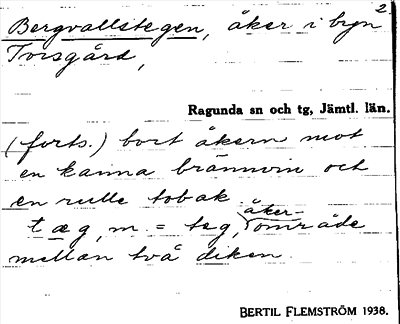 2
Bergvallstegen, åker i byn
Torsgård,
Ragunda sn och tg, Jämtl. län.
(forts.) bort åkern mot
en kanna brännvin och
en rulle tobak.
tæg, m. = teg, åker-område
mellan två diken.
BERTIL FLEMSTRÖM 1938.